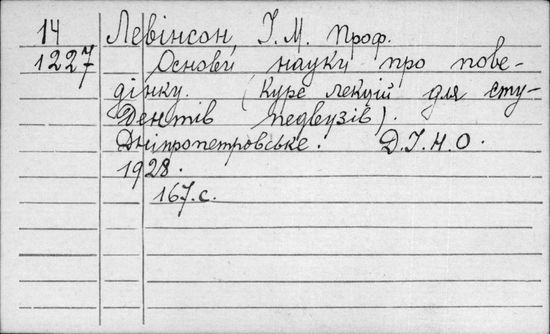 14 Левінсон, І.М. Проф.
1227 Основи науки про пове-
дінку. (Курс лекцій для сту-
дентів педвузів).
Дніпропетровське. Д.І.Н.О.
1928.
167.с.